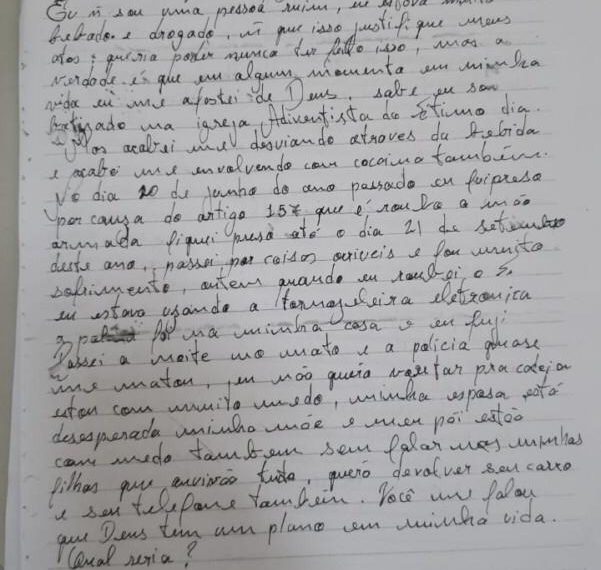 Eu ñ sou uma pessoa ruim, eu estava muito
bebado e drogado, ñ que isso justifique meus
atos; queria poder nunca ter feito isso, mas a
verdade é que em algum momento em minha
vida eu me afastei de Deus, sabe eu sou
batizado na igreja Adventista do Sétimo dia.
Mas acabei me desviando atraves da bebida
e acabei me envolvendo com cocaina também.
No dia 20 de junho do ano passado eu fui preso
por causa do artigo 157 que é roubo a mão
armada fiquei preso até o dia 21 de setembro
deste ano, passei por coisas orriveis e fou muito
sofrimento, ontem quando eu roubei o S.
eu estava usando a tornozeleira eletronica
a foi na minha casa e eu fugi
Passei a noite no mato e a policia quase
me matou, eu não quero voltar pra cadeia
estou com muito medo, minha esposa está
desesperada minha mãe e meu pai estão
com medo tambem sem falar nas minhas
filhas que ouvirão tudo, quero devolver seu carro
e seu telefone tambem. Você me falou
que Deus tem um plano em minha vida.
Qual seria?